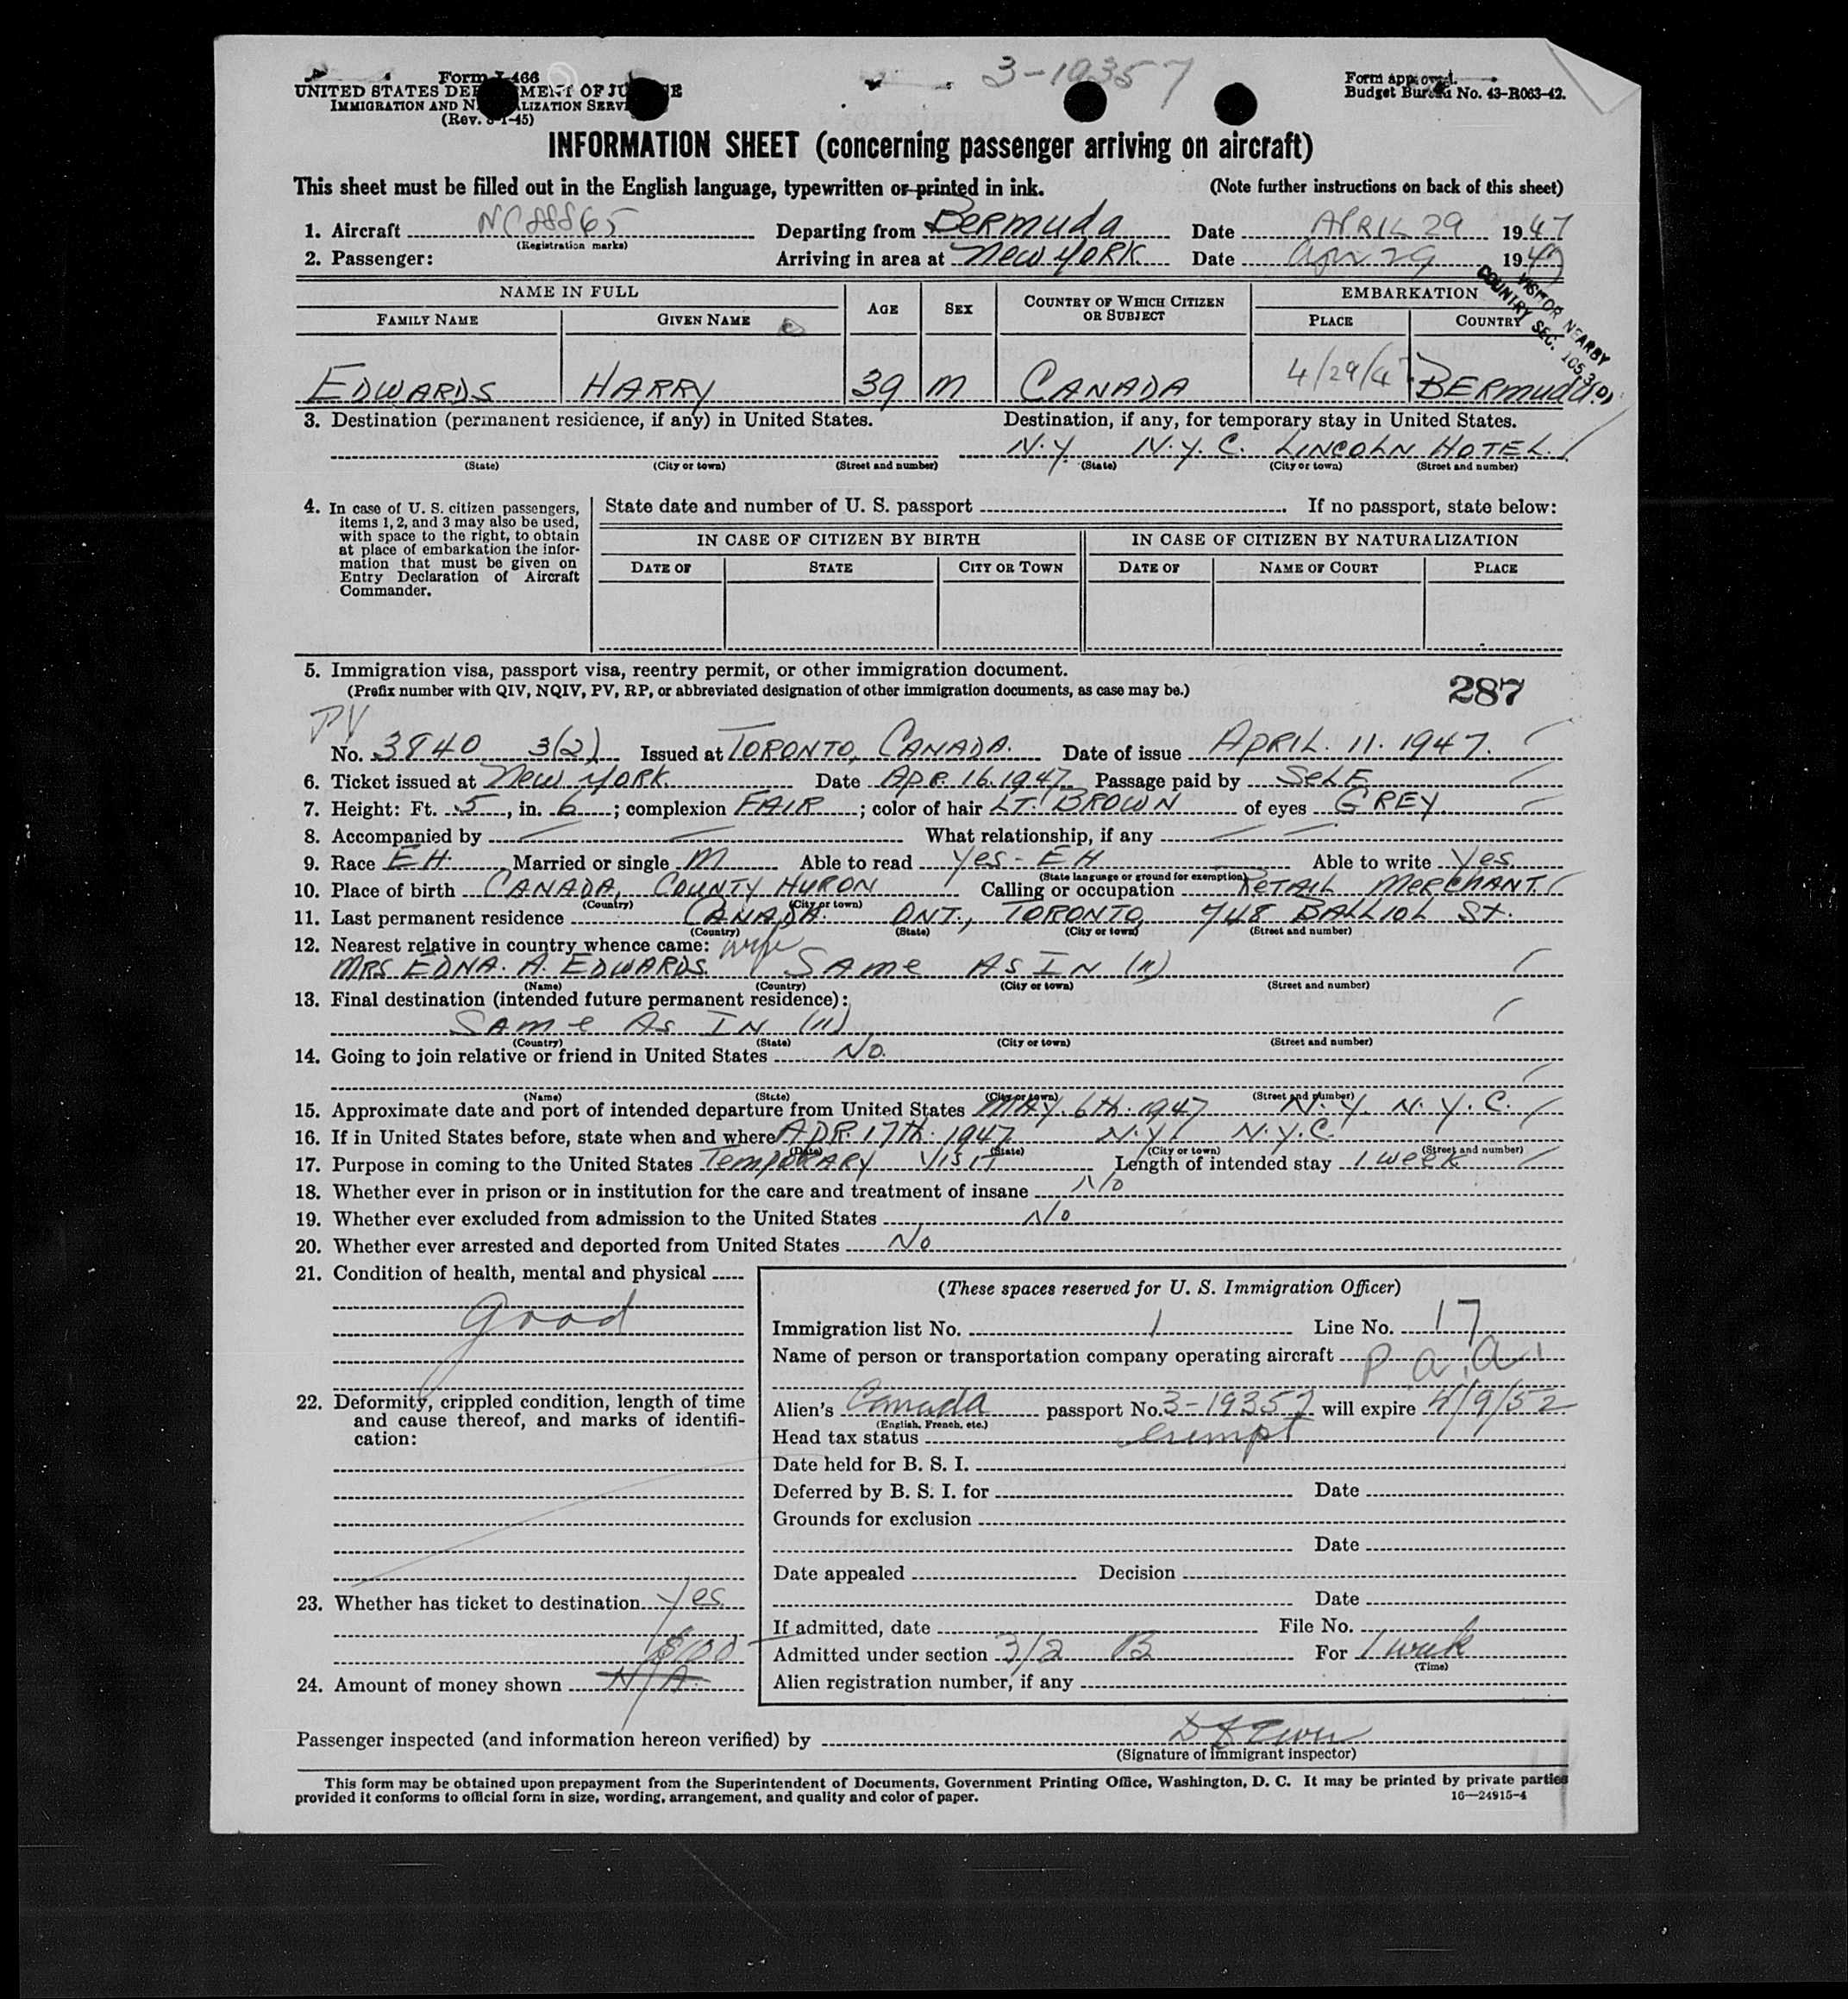 3-19357
Form I-466
UNITED STATES DEPARTMENT OF JUSTICE
IMMIGRATION AND NATURALIZATION SERVICE
(Rev. 8-1-45)
Form approved.
Budget Bureau No. 43-R063-42.
INFORMATION SHEET (concerning passenger arriving on aircraft)
This sheet must be filled out in the English language, typewritten or printed in ink. (Note further instructions on back of this sheet)
1. Aircraft NC88865 Departing from BERMUDA Date APRIL 29 1947
(Registration marks)
2. Passenger: Arriving in area at NEW YORK Date Apr 29 1947
VISITOR NEARBY
COUNTRY SEC.
NAME IN FULL AGE SEX COUNTRY OF WHICH CITIZEN OR SUBJECT EMBARKATION
FAMILY NAME GIVEN NAME PLACE COUNTRY
EDWARDS HARRY 39 M CANADA 4/29/47 BERMUDA
3. Destination (permanent residence, if any) in United States. Destination, if any, for temporary stay in United States.
N.Y. N.Y.C. LINCOLN HOTEL
(State) (City or town) (Street and number) (State) (City or town) (Street and number)
4. In case of U. S. citizen passengers, items 1, 2, and 3 may also be used, with space to the right, to obtain at place of embarkation the information that must be given on Entry Declaration of Aircraft Commander.
State date and number of U. S. passport If no passport, state below:
IN CASE OF CITIZEN BY BIRTH IN CASE OF CITIZEN BY NATURALIZATION
DATE OF STATE CITY OR TOWN DATE OF NAME OF COURT PLACE
5. Immigration visa, passport visa, reentry permit, or other immigration document.
(Prefix number with QIV, NQIV, PV, RP, or abbreviated designation of other immigration documents, as case may be.) 287
PV
No. 3840 3(2) Issued at TORONTO, CANADA. Date of issue APRIL. 11. 1947.
6. Ticket issued at NEW YORK. Date APR. 16. 1947 Passage paid by SELF
7. Height: Ft. 5, in. 6; complexion FAIR; color of hair LT. BROWN of eyes GREY.
8. Accompanied by — — What relationship, if any — —
9. Race EH. Married or single M Able to read Yes - EH Able to write Yes
(State language or ground for exemption)
10. Place of birth CANADA, COUNTY HURON Calling or occupation RETAIL MERCHANT
(Country) (City or town)
11. Last permanent residence CANADA. ONT., TORONTO 748 BALLIOL ST.
(Country) (State) (City or town) (Street and number)
12. Nearest relative in country whence came: wife
MRS EDNA. A. EDWARDS. SAME AS IN (11)
(Name) (Country) (City or town) (Street and number)
13. Final destination (intended future permanent residence):
SAME AS IN (11)
(Country) (State) (City or town) (Street and number)
14. Going to join relative or friend in United States No.
(Name) (State) (City or town) (Street and number)
15. Approximate date and port of intended departure from United States MAY. 6th. 1947 N.Y. N.Y.C.
16. If in United States before, state when and where APR. 17th. 1947 N.Y. N.Y.C.
(Date) (State) (City or town) (Street and number)
17. Purpose in coming to the United States TEMPORARY VISIT Length of intended stay 1 WEEK
18. Whether ever in prison or in institution for the care and treatment of insane No
19. Whether ever excluded from admission to the United States No
20. Whether ever arrested and deported from United States No
21. Condition of health, mental and physical
good
22. Deformity, crippled condition, length of time and cause thereof, and marks of identification:
23. Whether has ticket to destination Yes
$100
24. Amount of money shown N/A
(These spaces reserved for U. S. Immigration Officer)
Immigration list No. 1 Line No. 17
Name of person or transportation company operating aircraft P.a.a.
Alien's Canada passport No. 3-19357 will expire 4/9/52
(English, French, etc.)
Head tax status exempt
Date held for B. S. I.
Deferred by B. S. I. for Date
Grounds for exclusion
Date
Date appealed Decision
Date
If admitted, date File No.
Admitted under section 3/2 B For 1 week
(Time)
Alien registration number, if any
Passenger inspected (and information hereon verified) by
(Signature of immigrant inspector)
This form may be obtained upon prepayment from the Superintendent of Documents, Government Printing Office, Washington, D. C. It may be printed by private parties
provided it conforms to official form in size, wording, arrangement, and quality and color of paper. 16—24915-4